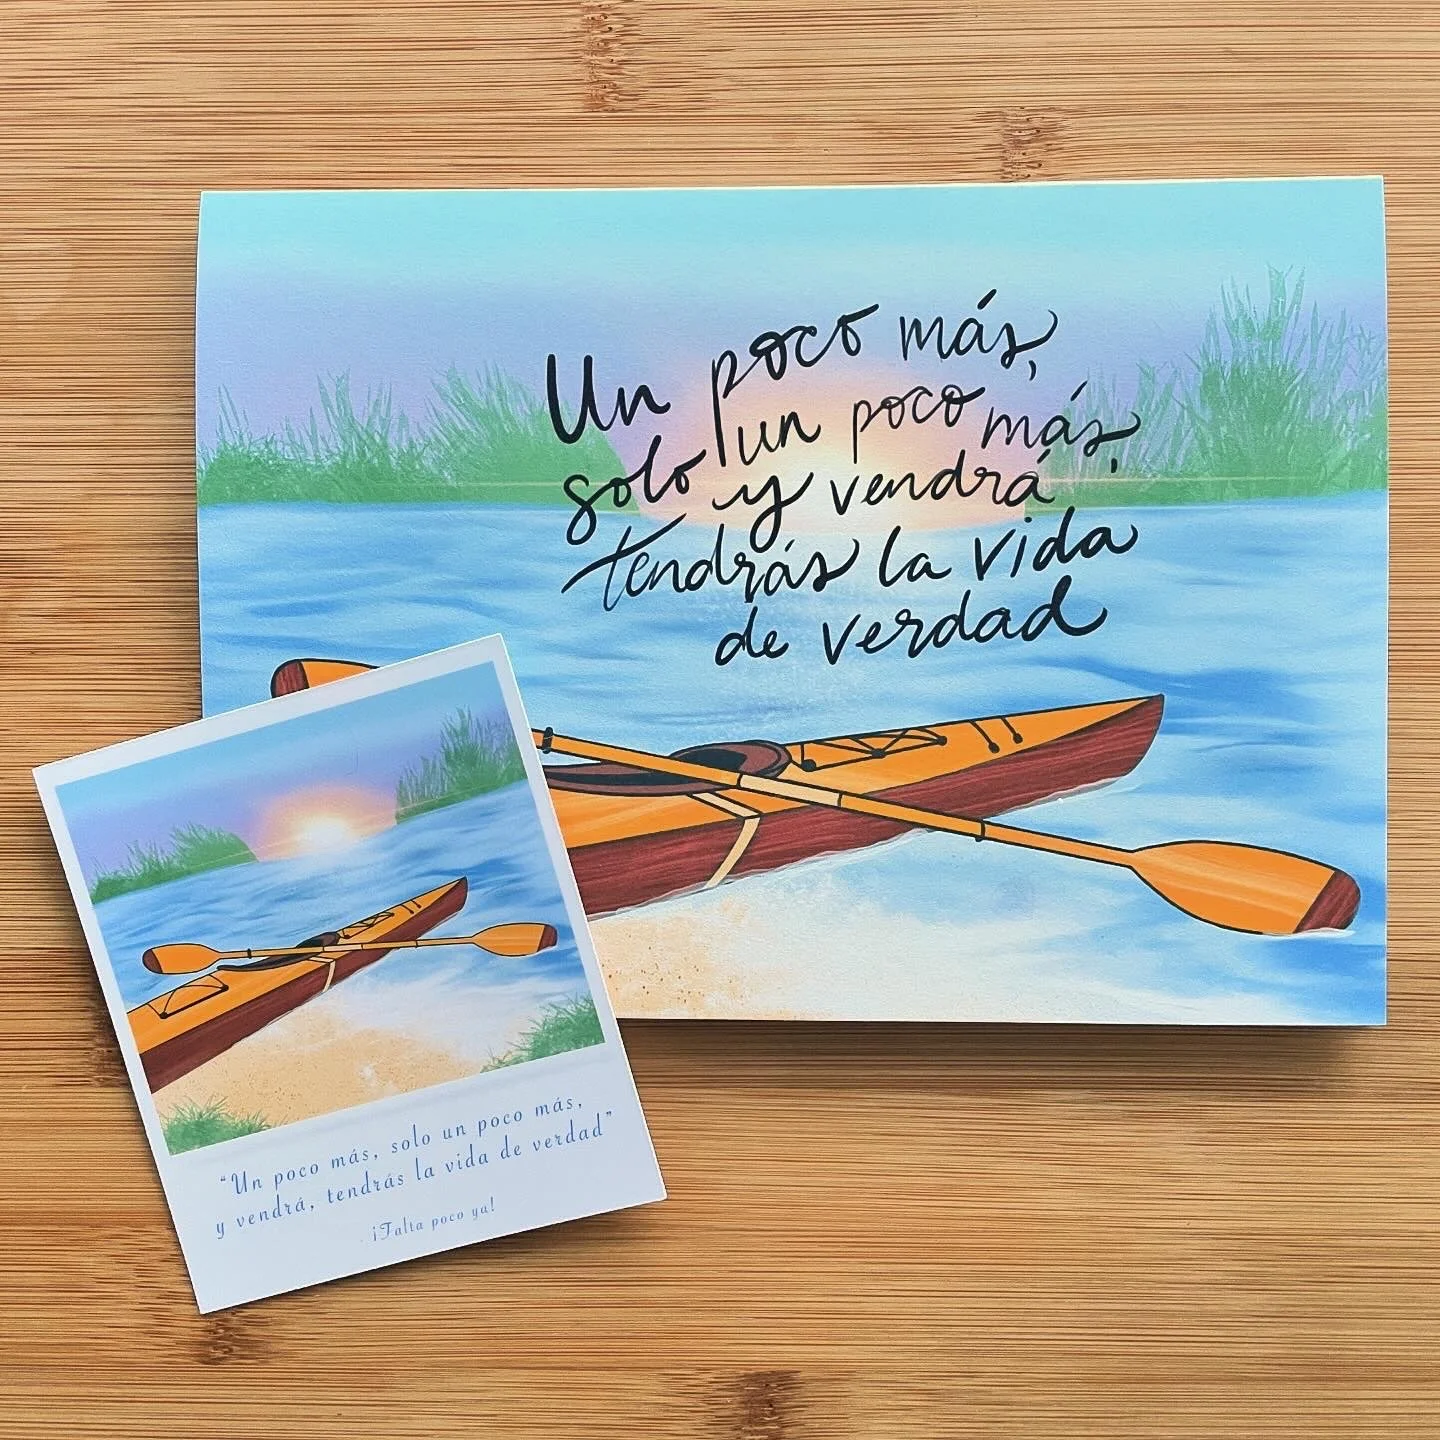 Un poco más,
solo un poco más,
y vendrá
tendrás la vida
de verdad
“Un poco más, solo un poco más,
y vendrá, tendrás la vida de verdad”
¡Falta poco ya!